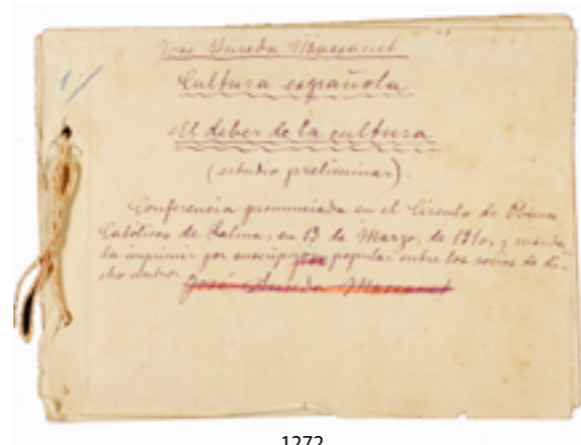 José Sureda Massanet
Cultura española
El deber de la cultura
(estudio preliminar).
Conferencia pronunciada en el Círculo de Obreros
Católicos de Palma, en 13 de Marzo, de 1910, y manda-
da imprimir por suscripción popular entre los socios de di-
cho centro.
José Sureda Massanet
1272